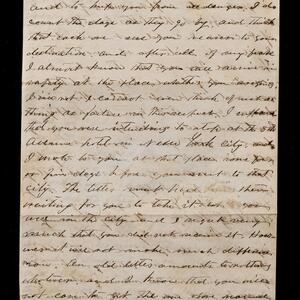 and to keep you from all danger, I also
count the days as they go by and think
that each one sees you nearer to your
destination and after all of my
I almost know that you will arrive in
safety at the place whither you are
I do not I cannot even think of such a
thing as failure in this respect. I supposed
that you were intending to stop at the 5th
Avenue hotel in New York City, and
I wrote to you at that place some four
or five days before you went to that
city. The letter must have been there
waiting for you to take it but you
were in the city and I regret very
much that you did not receive it. How
ever it will not make much difference
now. An old letter amounts to nothing
who town and I know that you will
not come to get the one you